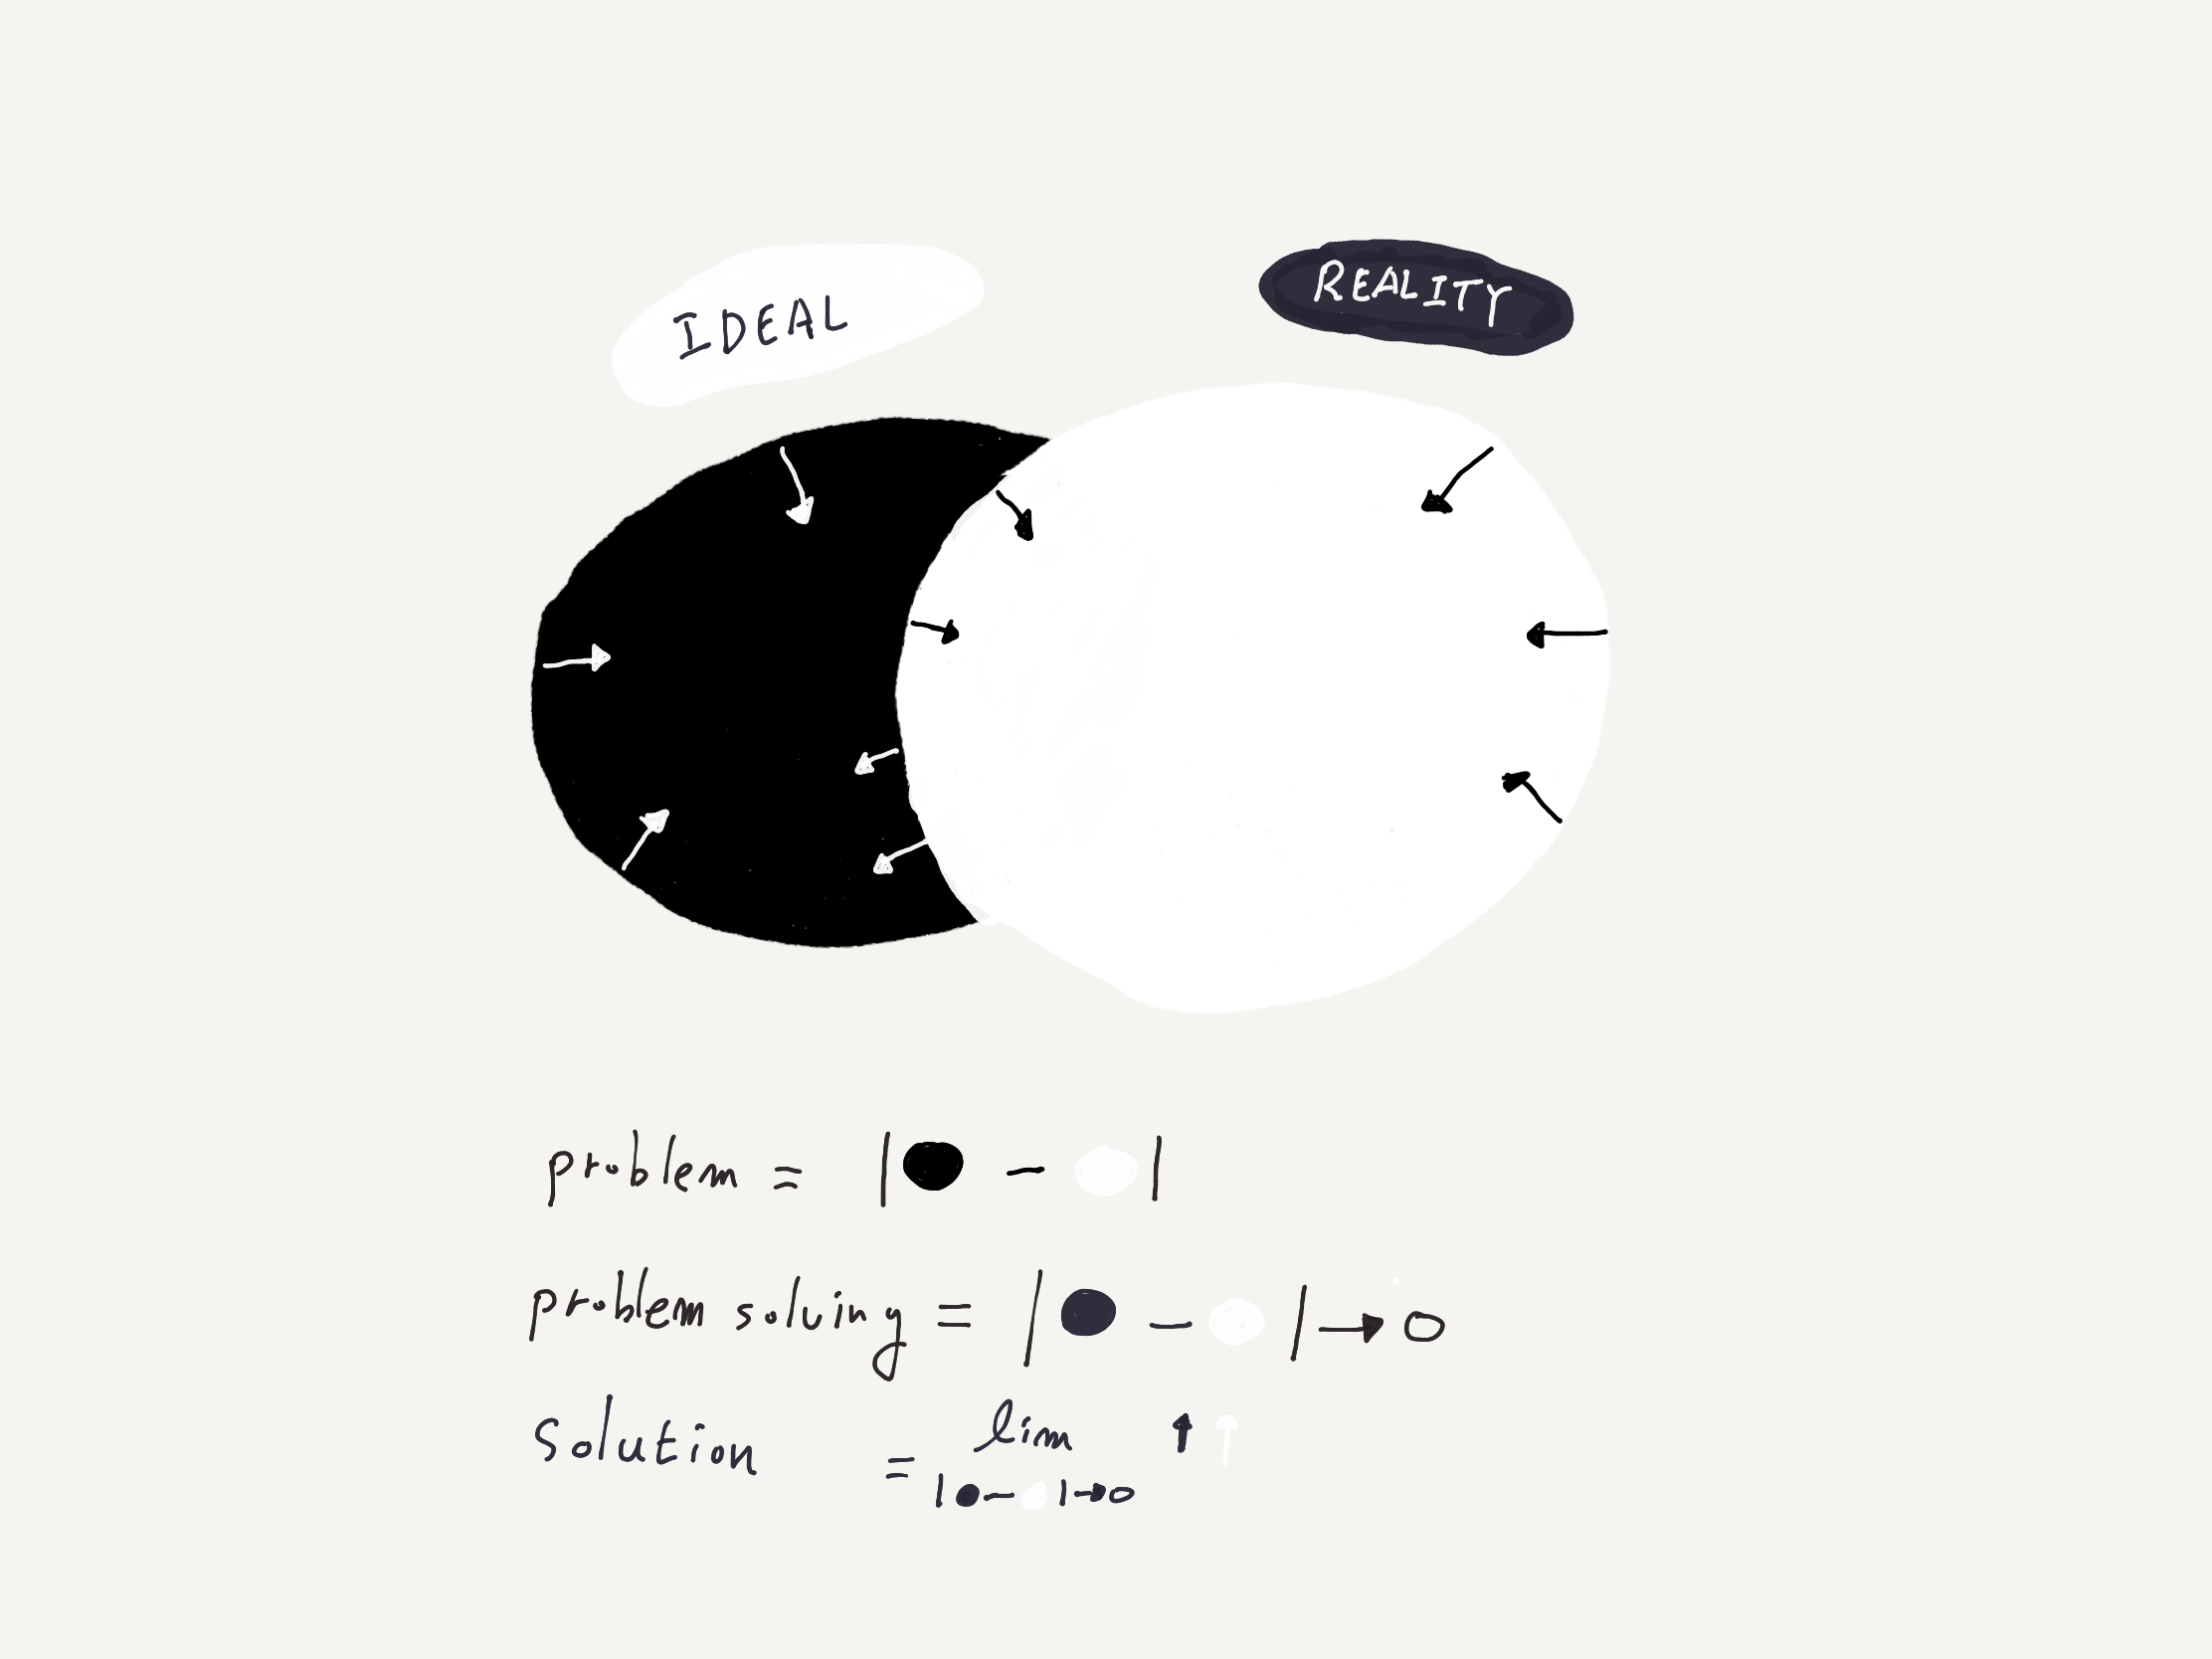 IDEAL
REALITY
problem = |⚫ - ⚪|
problem solving = |⚫ - ⚪| → 0
solution = lim ⬆ ⇧
|⚫-⚪|→0